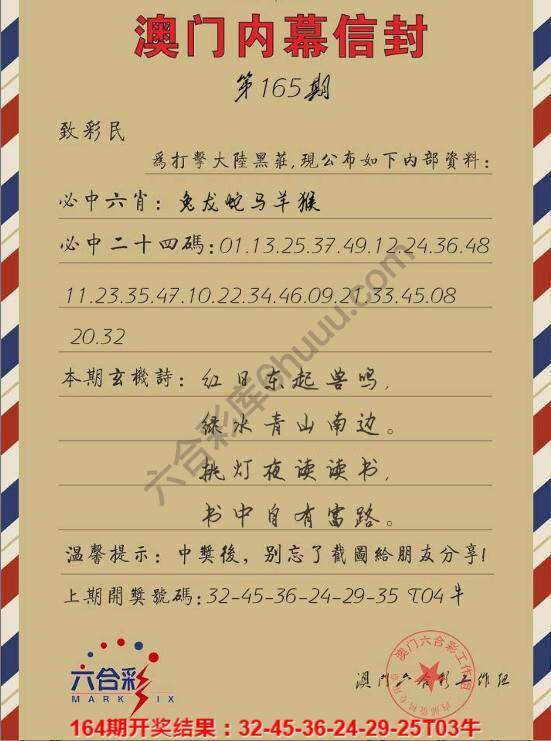 澳门内幕信封
第165期
致彩民
為打擊大陸黑莊,現公布如下内部資料:
必中六肖: 兔龙蛇马羊猴
必中二十四碼:01.13.25.37.49.12.24.36.48
11.23.35.47.10.22.34.46.09.21.33.45.08
20.32
本期玄機詩: 红日东起兽鸣,
绿水青山南边。
挑灯夜读读书,
书中自有富路。
溫馨提示: 中獎後, 別忘了截圖給朋友分享!
上期開獎號碼:32-45-36-24-29-35 T04牛
六合彩库@huuu.com
六合彩
MARK SIX
澳门六合彩工作组
澳門六合彩工作组
164期开奖结果:32-45-36-24-29-25T03牛